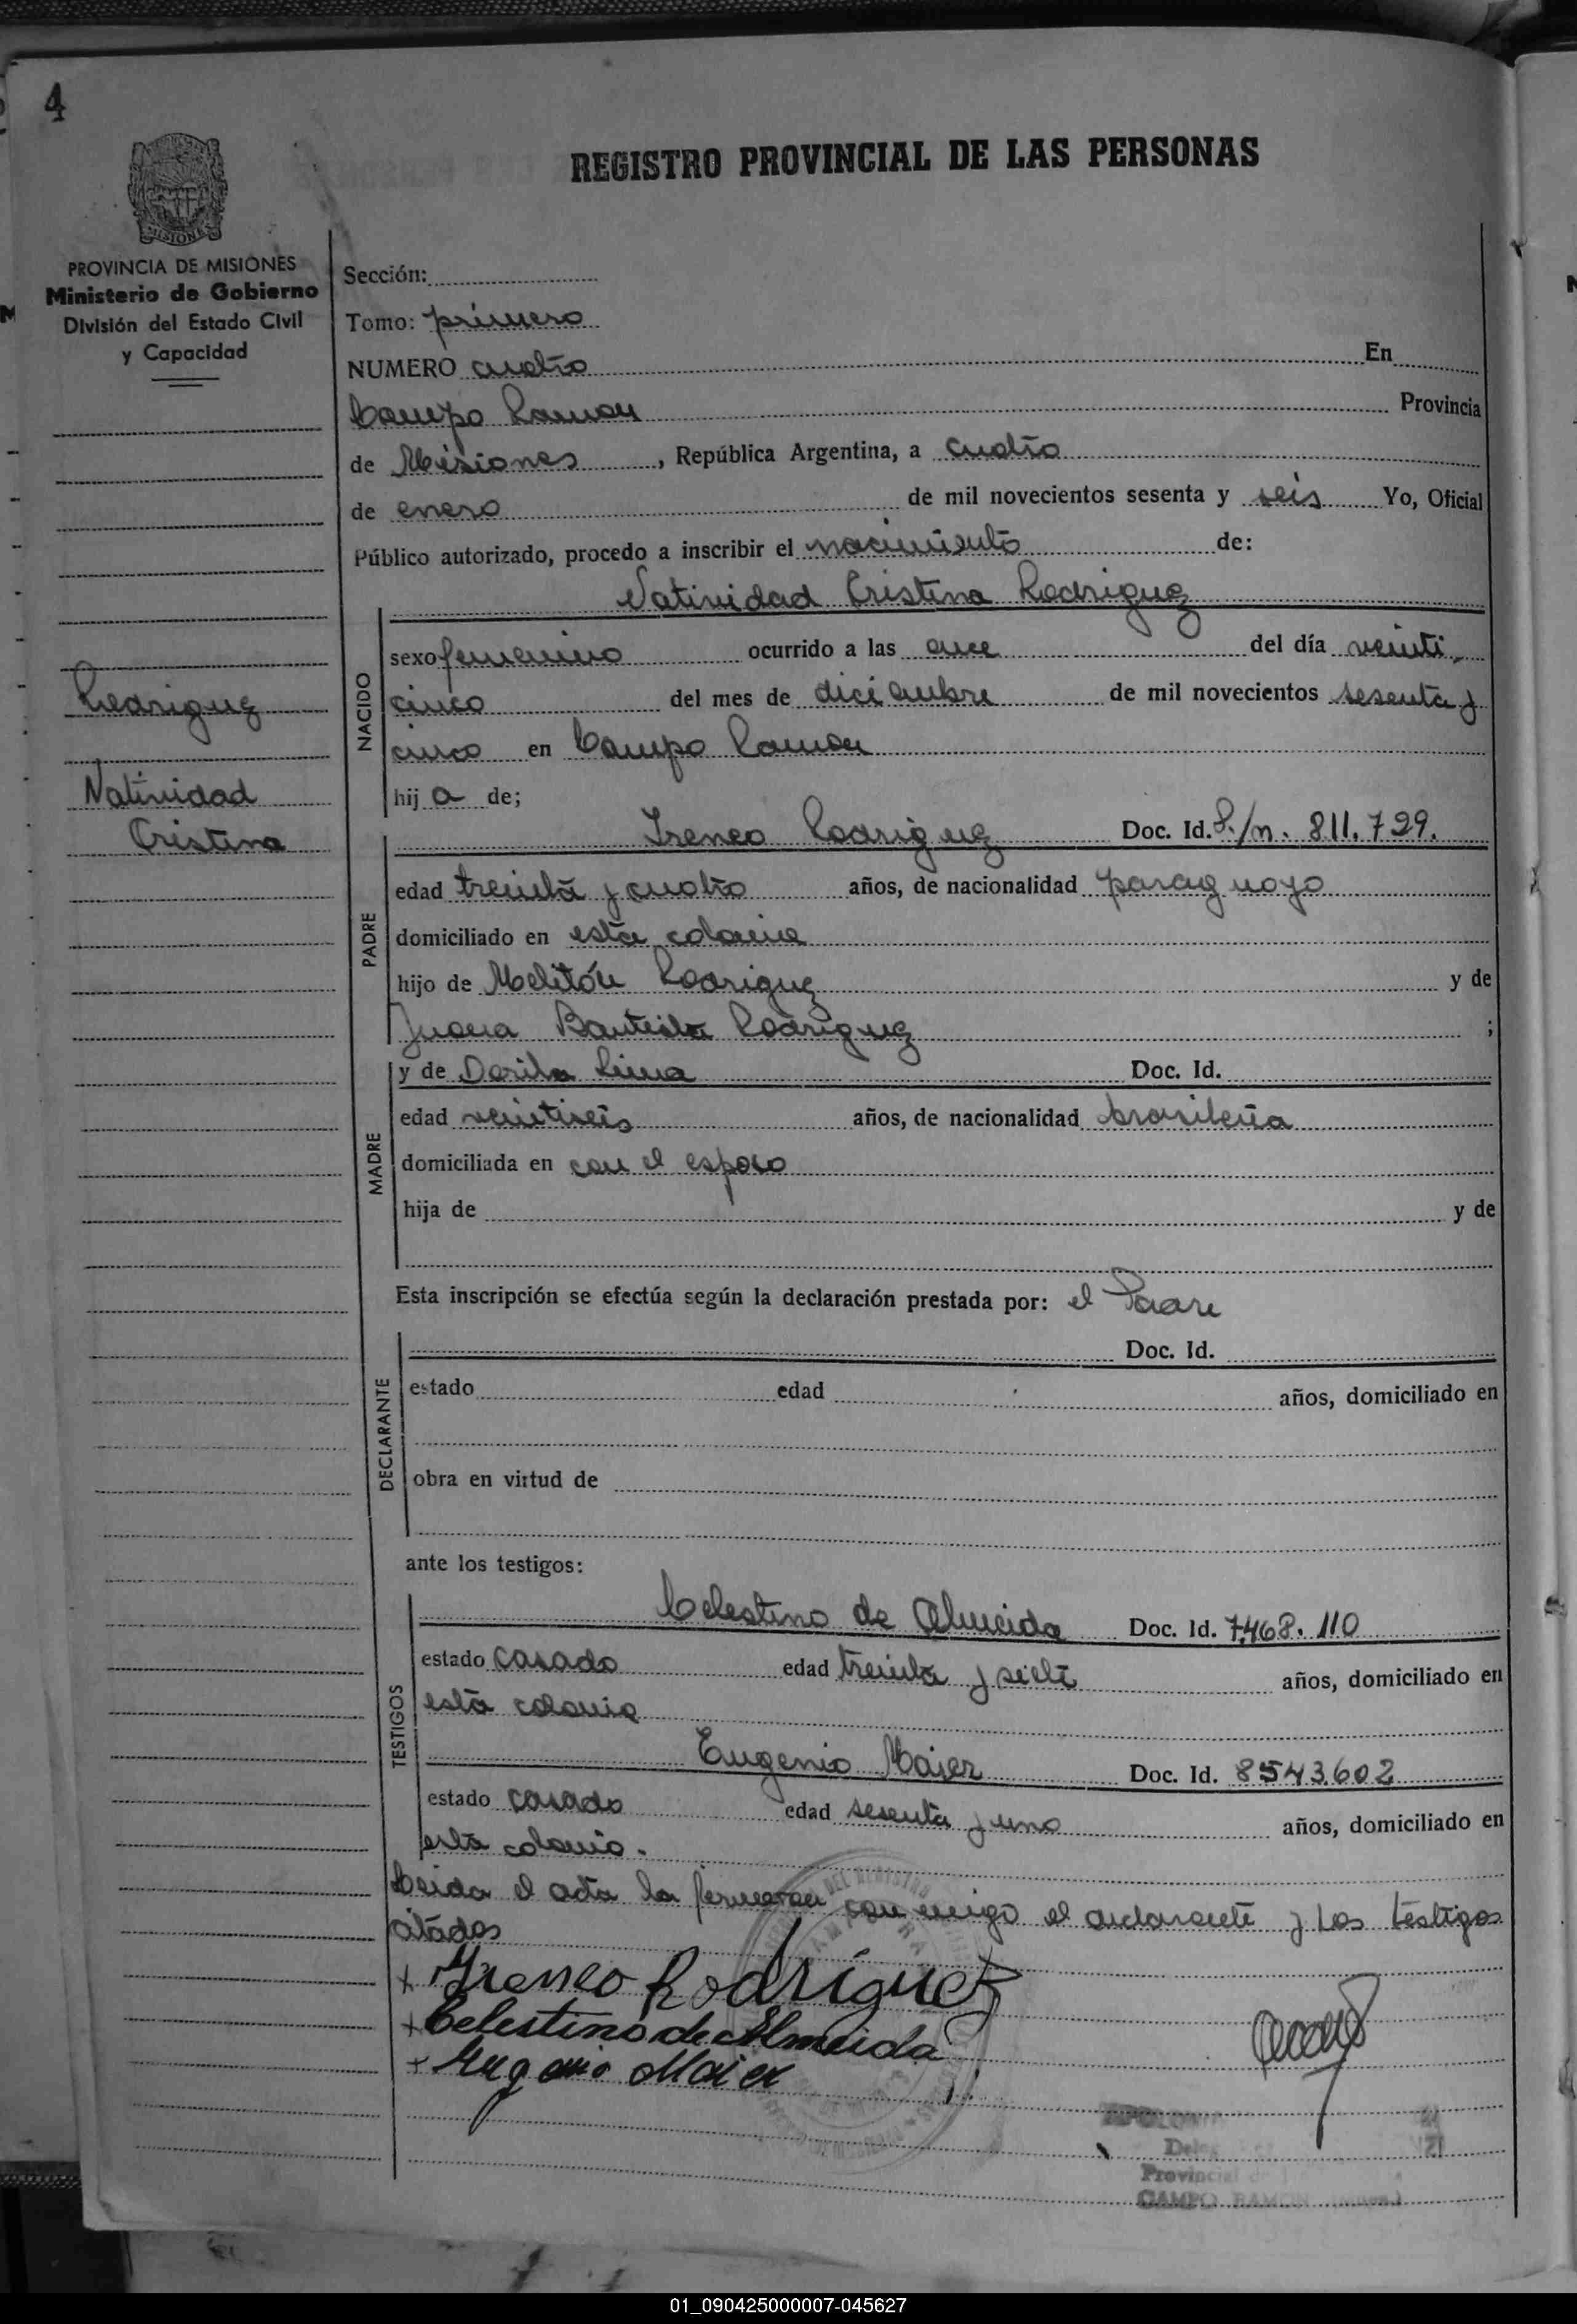 4
REGISTRO PROVINCIAL DE LAS PERSONAS
MISIONES
PROVINCIA DE MISIONES
Ministerio de Gobierno
División del Estado Civil
y Capacidad
Rodriguez
Natividad
Cristina
Sección:
Tomo: primero
NUMERO cuatro En
Campo Ramon Provincia
de Misiones, República Argentina, a cuatro
de enero de mil novecientos sesenta y seis Yo, Oficial
Público autorizado, procedo a inscribir el nacimiento de:
Natividad Cristina Rodriguez
NACIDO
sexo femenino ocurrido a las once del día veinti
cinco del mes de diciembre de mil novecientos sesenta y
cinco en Campo Ramon
hij a de;
PADRE
Ireneo Rodriguez Doc. Id. P./n. 811.729.
edad treinta y cuatro años, de nacionalidad paraguayo
domiciliado en esta colonia
hijo de Melitón Rodriguez y de
Juana Bautista Rodriguez ;
MADRE
y de Dorila Lima Doc. Id.
edad veintiseis años, de nacionalidad brasileña
domiciliada en con el esposo
hija de y de
Esta inscripción se efectúa según la declaración prestada por: el Padre
DECLARANTE
Doc. Id.
estado edad años, domiciliado en
obra en virtud de
ante los testigos:
TESTIGOS
Celestino de Almeida Doc. Id. 7.468.110
estado casado edad treinta y siete años, domiciliado en
esta colonia
Eugenio Maier Doc. Id. 8543602
estado casado edad sesenta y uno años, domiciliado en
esta colonia.
Leida el acta la firmaron con migo el declarante y los testigos
citados
+ Ireneo Rodríguez
+ Celestino de Almeida
+ Eugenio Maier
Provincial de
CAMPO RAMON
01_090425000007-045627